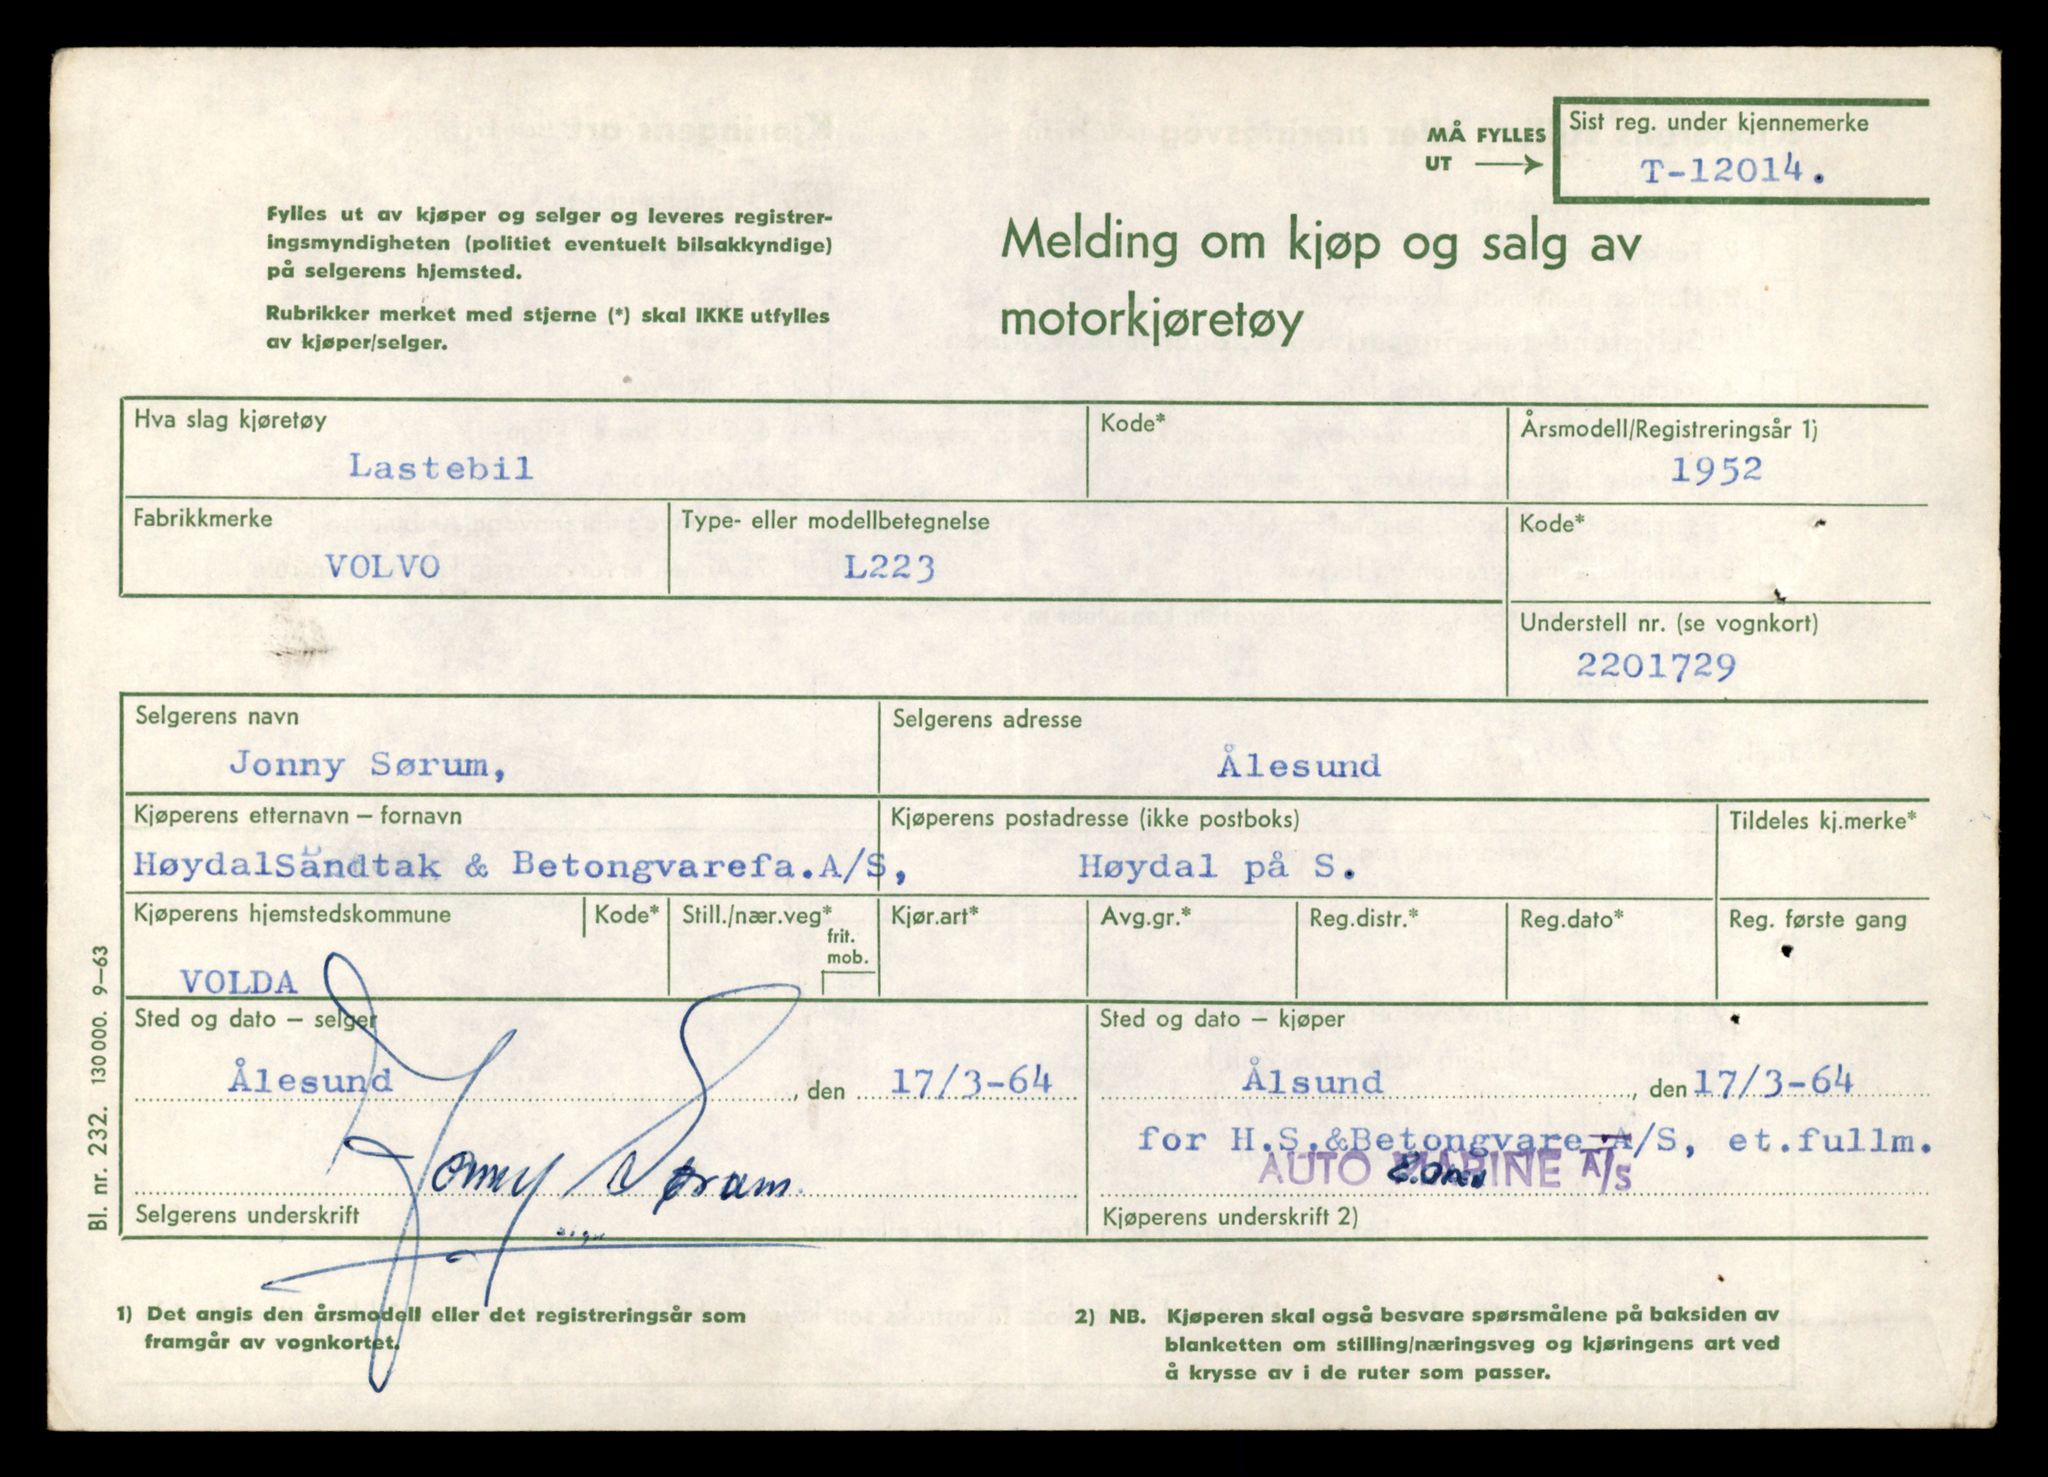 MÅ FYLLES UT
Sist reg. under kjennemerke
T-12014.
Fylles ut av kjøper og selger og leveres registrer-
ingsmyndigheten (politiet eventuelt bilsakkyndige)
på selgerens hjemsted.
Rubrikker merket med stjerne (*) skal IKKE utfylles
av kjøper/selger.
Melding om kjøp og salg av
motorkjøretøy
Hva slag kjøretøy
Lastebil
Kode*
Årsmodell/Registreringsår 1)
1952
Fabrikkmerke
VOLVO
Type- eller modellbetegnelse
L223
Kode*
Understell nr. (se vognkort)
2201729
Selgerens navn
Jonny Sørum,
Selgerens adresse
Ålesund
Kjøperens etternavn – fornavn
HøydalSandtak & Betongvarefa.A/S,
Kjøperens postadresse (ikke postboks)
Høydal på S.
Tildeles kj.merke*
Kjøperens hjemstedskommune
VOLDA
Kode*
Still./nær.veg*
frit.
mob.
Kjør.art*
Avg.gr.*
Reg.distr.*
Reg.dato*
Reg. første gang
Sted og dato – selger
Ålesund , den 17/3-64
Jonny Sørum
sign
Selgerens underskrift
Sted og dato – kjøper
Ålsund , den 17/3-64
for H.S.&Betongvare A/S, et.fullm.
AUTO MARINE A/S
Kjøperens underskrift 2)
Bl. nr. 232. 130 000. 9–63
1) Det angis den årsmodell eller det registreringsår som
framgår av vognkortet.
2) NB. Kjøperen skal også besvare spørsmålene på baksiden av
blanketten om stilling/næringsveg og kjøringens art ved
å krysse av i de ruter som passer.